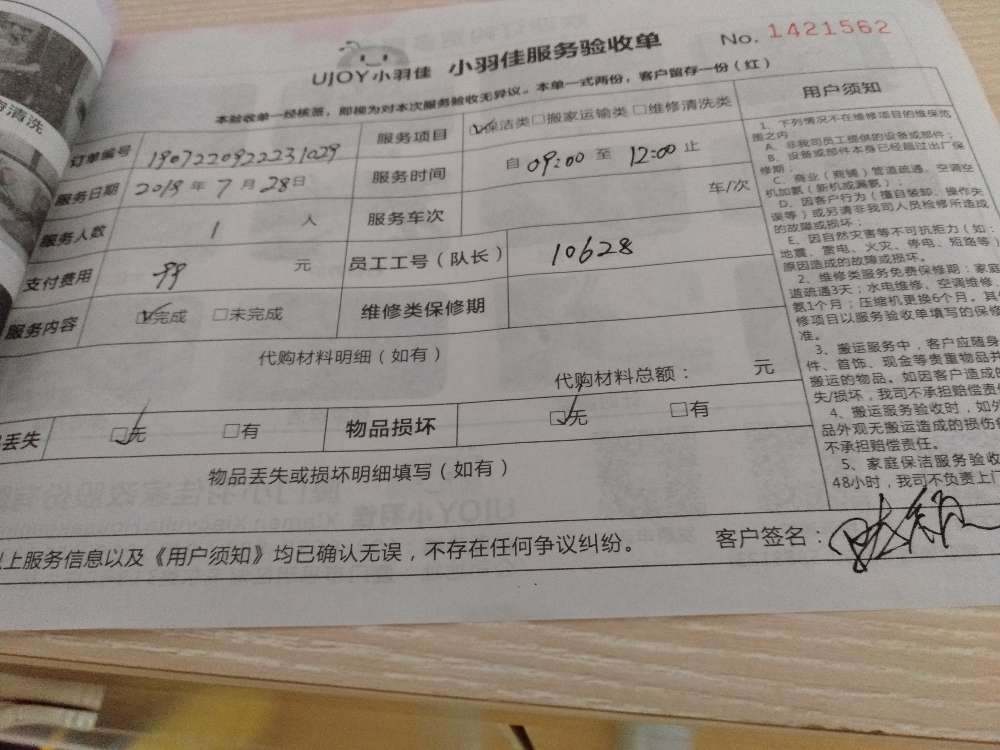 清洗
UJOY小羽佳 小羽佳服务验收单 No. 1421562
本验收单一经核签，即视为对本次服务验收无异议。本单一式两份，客户留存一份（红）
订单编号 1907220922231029 服务项目 ☑保洁类□搬家运输类□维修清洗类
服务日期 2019年7月28日 服务时间 自 09:00 至 12:00 止
服务人数 1 人 服务车次 车/次
支付费用 99 元 员工工号（队长） 10628
服务内容 ☑完成 □未完成 维修类保修期
代购材料明细（如有）
代购材料总额： 元
丢失 ☑无 □有 物品损坏 ☑无 □有
物品丢失或损坏明细填写（如有）
上服务信息以及《用户须知》均已确认无误，不存在任何争议纠纷。 客户签名：
用户须知
1、下列情况不在维修项目的维保范
围之内：
A、非我司员工提供的设备或部件；
B、设备或部件本身已经超过出厂保
修期；
C、商业（商铺）管道疏通、空调空
机加氨（新机或漏氨）；
D、因客户行为（擅自装卸、操作失
误等）或另请非我司人员检修所造成
的故障或损坏；
E、因自然灾害等不可抗拒力（如：
地震、雷电、火灾、停电、短路等）
原因造成的故障或损坏。
2、维修类服务免费保修期：家庭
道疏通3天；水电维修、空调维修、
氨1个月；压缩机更换6个月。其
修项目以服务验收单填写的保修
准。
3、搬运服务中，客户应随身
件、首饰、现金等贵重物品并
搬运的物品。如因客户造成的
失/损坏，我司不承担赔偿责
4、搬运服务验收时，如外
品外观无搬运造成的损伤
不承担赔偿责任。
5、家庭保洁服务验收
48小时，我司不负责上门